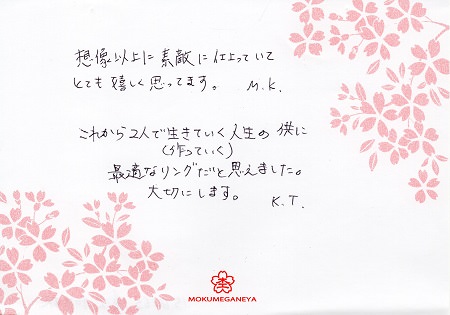 想像以上に素敵に仕上っていて
とても嬉しく思ってます。 M.K.
これから2人で生きていく人生の供に
(作っていく)
最適なリングだと思えました。
大切にします。 K.T.
杢
MOKUMEGANEYA